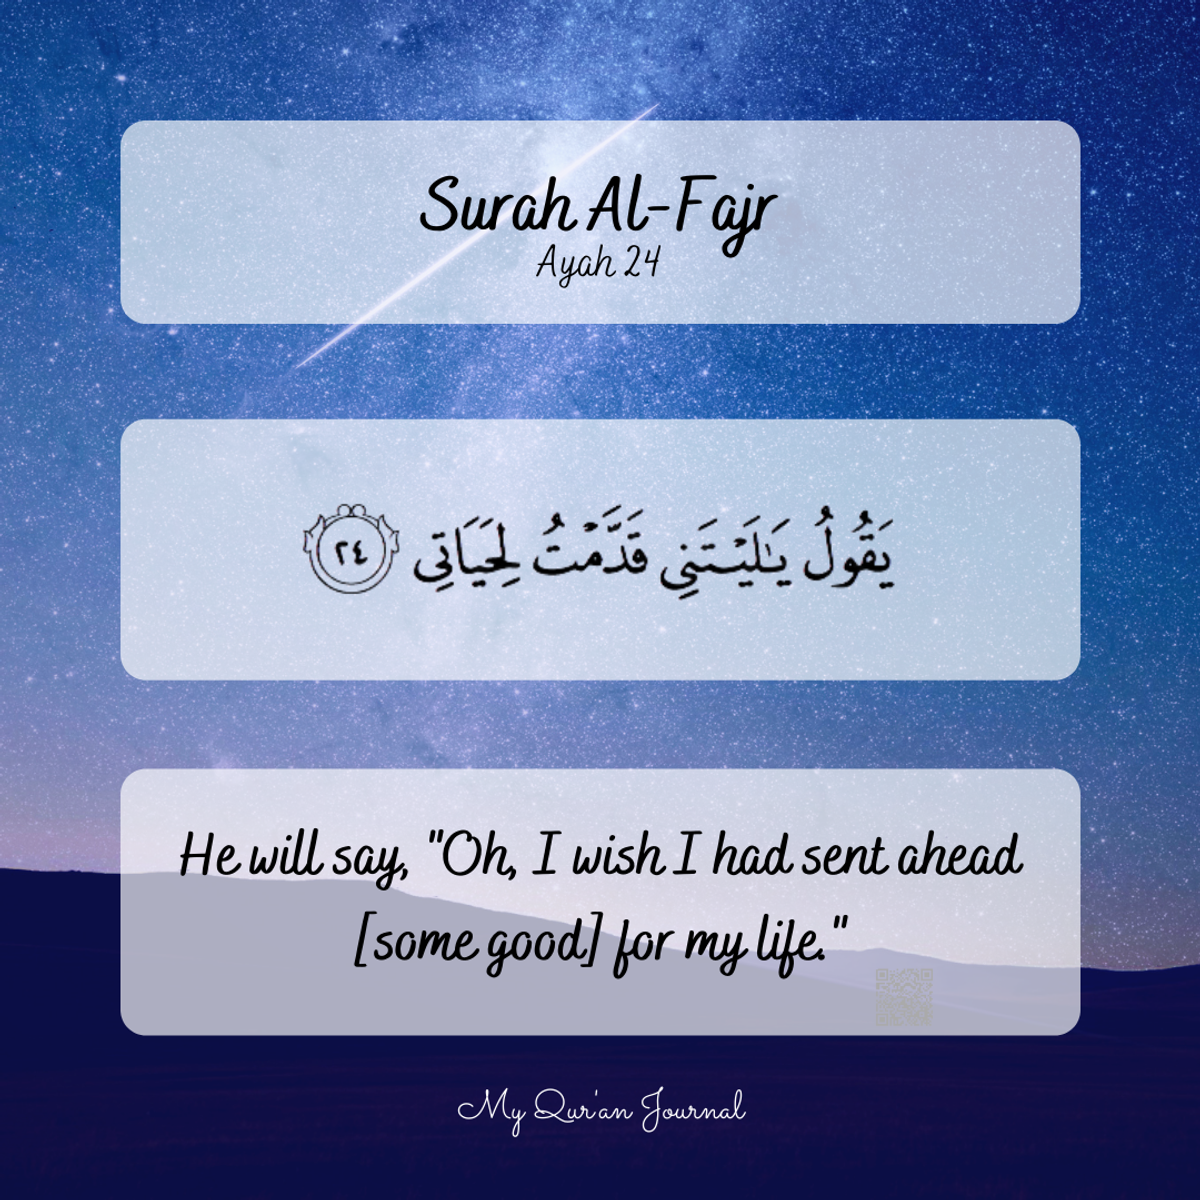 Surah Al-Fajr
Ayah 24
يَقُولُ يَـٰلَيْتَنِى قَدَّمْتُ لِحَيَاتِى ٢٤
He will say, "Oh, I wish I had sent ahead
[some good] for my life."
My Qur'an Journal